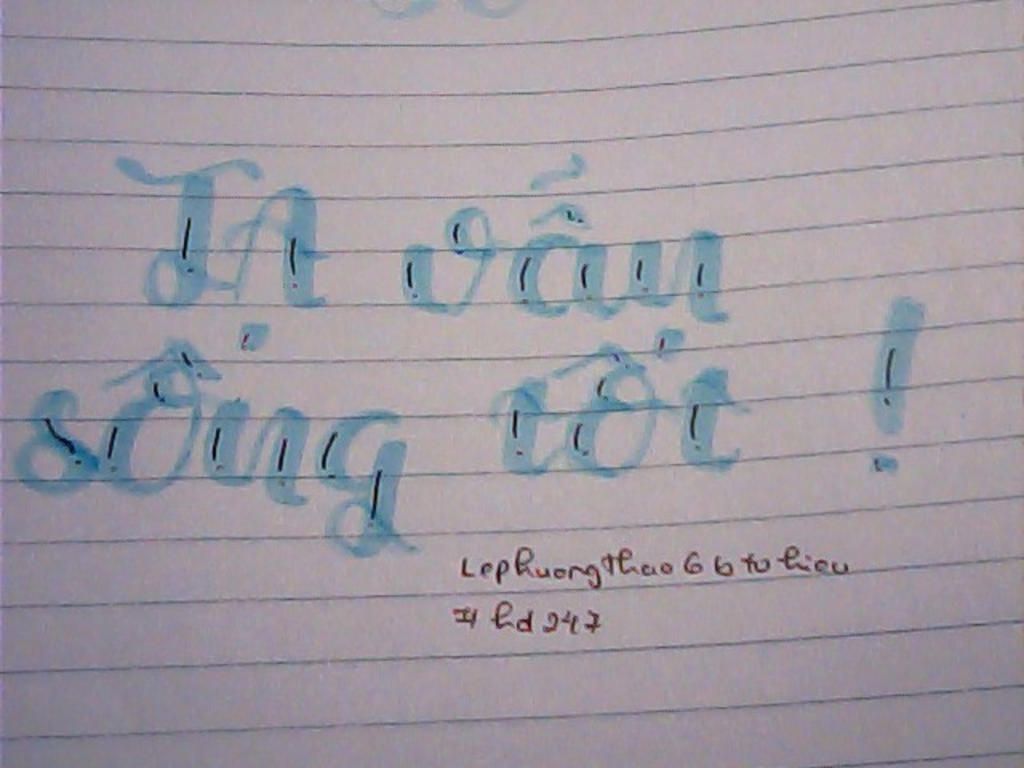 TA vẫn
sống tốt !
Lephuongthao 6b to hieu
# hd 247